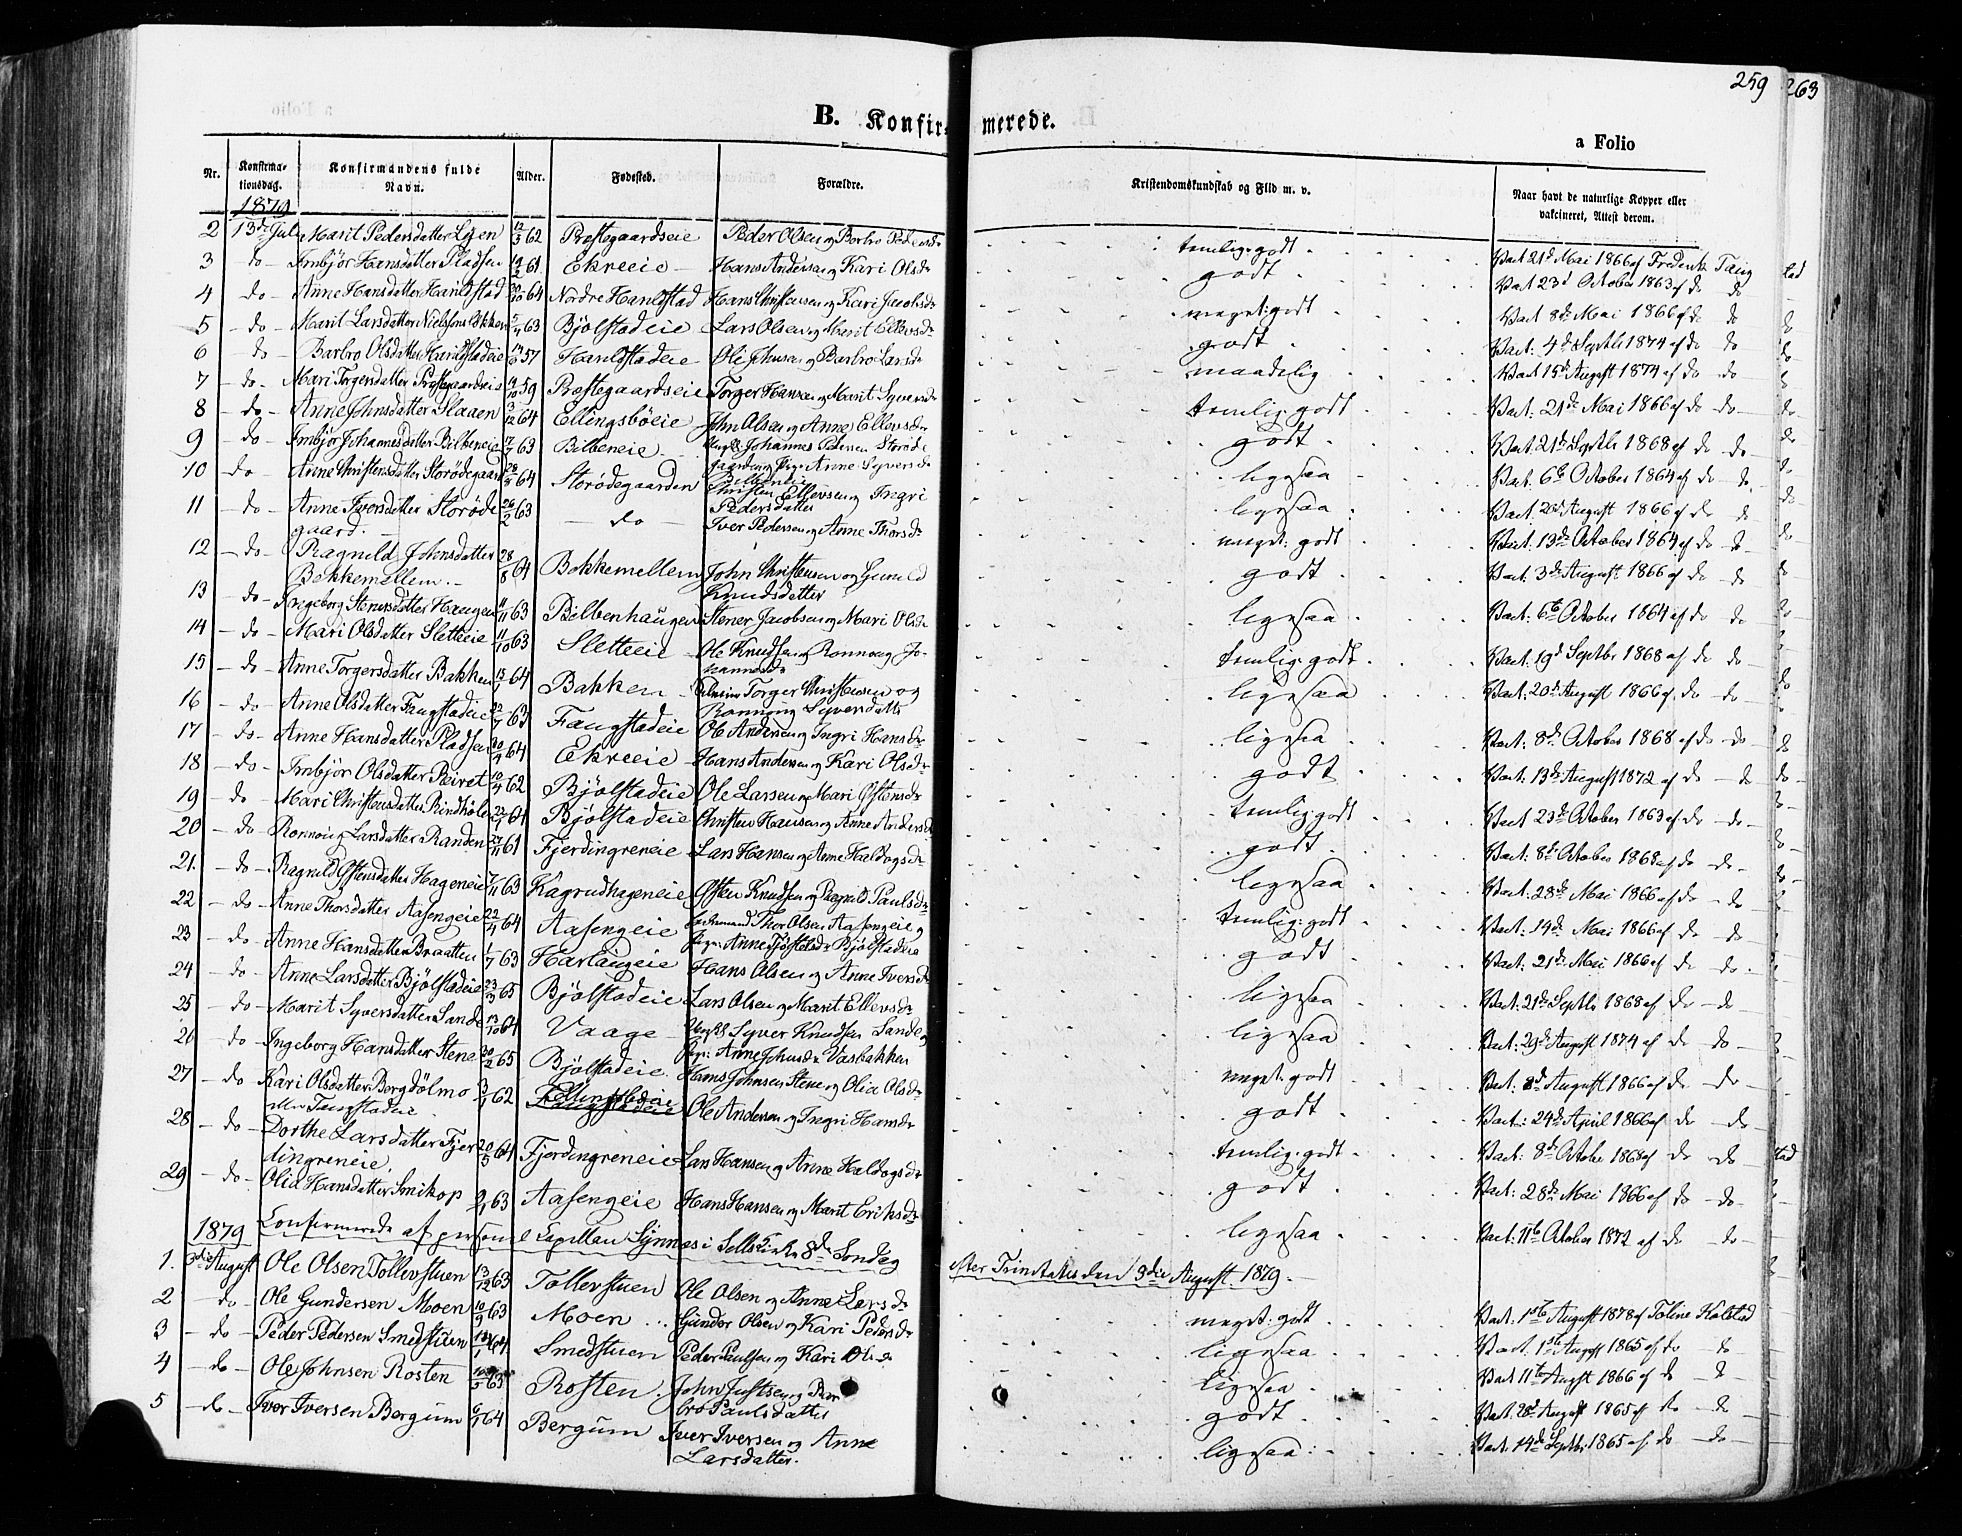 259 263
B. Konfirmerede.
a Folio
Nr. Konfirmationsdag. Konfirmandens fulde Navn. Alder. Fødested. Forældre. Kristendomskundskab og Flid m. v. Naar havt de naturlige Kopper eller vakcineret, Attest derom.
1879
2 13de Juli Marit Pedersdatter 12/3 62 Prestegaardseie Peder Olsen og Barbro Pedersdr temlig: godt Vact 21de Mai 1866 af Frederik Taug
3 do Imbjør Hansdatter Pladsen 61 Ekreeie Hans Andersen og Kari Olsdr godt Vact 23de October 1863 af do do
4 do Anne Hansdatter Harildstad 64 Nordre Harildstad Hans Christensen og Kari Jacobsdr meget: godt Vact 8de Mai 1866 af do do
5 do Marit Larsdatter 63 Bjølstadeie Lars Olsen og Marit Ellevsdr godt Vact: 4de Septbr 1874 af do do
6 do Barbro Olsdatter Harildstadeie 57 Harildstadeie Ole Johnsen og Barbro Larsdr maadelig Vact 15de August 1874 af do do
7 do Mari Torgersdatter Prestegaardseie 14/10 59 Prestegaardseie Torger Hansen og Marit Syversdr temlig: godt Vact: 21de Mai 1866 af do do
8 do Anne Johnsdatter Slaaen 3/12 64 Ellingsbøeie John Olsen og Anne Ellevsdr godt Vact. 21de Septbr 1868 af do do
9 do Imbjør Johannesdatter Bilbeneie 63 Bilbeneie Ungk: Johannes Pedersen Storøde gaarden og Pige Anne Syversdr Bilbeneie ligesaa Vact. 6te October 1864 af do do
10 do Anne Christensdatter Storødegaard 64 Storødegaarden Christen Ellevsen og Ingri Pedersdatter ligesaa Vact. August 1866 af do do
11 do Anne Iversdatter Storøde gaard. 26/2 63 do Iver Pedersen og Anne Thorsdr meget: godt Vact. 13de October 1864 af do do
12 do Ragnild Johnsdatter Bakkemellem 28/8 64 Bakkemellem John Christensen og Gunild Knudsdatter godt Vact: 3de August 1866 af do do
13 do Ingeborg Stenersdatter Haugen 11/11 63 Bilbenhaugen Stener Jacobsen og Mari Olsdr ligesaa Vact: 6te October 1864 af do do
14 do Mari Olsdatter Sletteeie 11/10 63 Sletteeie Ole Knudsen og Ronnoug Johannesdr temlig: godt Vact: 19de Septbr 1868 af do do
15 do Anne Torgersdatter Bakken 64 Bakken Torger Christensen og Ronnoug Syversdatter ligesaa Vact: 20de August 1866 af do do
16 do Anne Olsdatter Faugstadeie 63 Faugstadeie Ole Andersen og Ingri Hansdr ligesaa Vact: 8de October 1868 af do do
17 do Anne Hansdatter Pladsen 64 Ekreeie Hans Andersen og Kari Olsdr godt Vact: 13de August 1872 af do do
18 do Imbjør Olsdatter 10/4 62 Bjølstadeie Ole Larsen og Mari Østensdr temlig: godt Vact 23de October 1863 af do do
19 do Mari Christensdatter Rindhølen 64 Bjølstadeie Christen Hansen og Anne Andersdr godt Vact: 8de October 1868 af do do
20 do Ronnoug Larsdatter Randen 27/11 61 Fjerdingreneie Lars Hansen og Anne Haldogsdr ligesaa Vact: 28de Mai 1866 af do do
21. do Ragnild Østensdatter Hageneie 7/11 63 Kagrudhageneie Østen Knudsen og Ragnild Paulsdr temlig: godt Vact: 14de Mai 1866 af do do
22 do Anne Thorsdatter Aasengeie 22/4 64 Aasengeie Thor Olsen Aasengeie og Pige: Anne Bjølstadeie godt Vact: 21de Mai 1866 af do do
23 do Anne Hansdatter Braatten 1/7 63 Harlaugeie Hans Olsen og Anne Iversdr ligesaa Vact: 21de Septbr 1868 af do do
24 do Anne Larsdatter Bjølstadeie 23/3 65 Bjølstadeie Lars Olsen og Marit Ellevsdr ligesaa Vact: 29de August 1874 af do do
25 do Marit Syversdatter Sande 13/10 64 Vaage Ungk: Syver Knudsen Sande og Pige: Anne Johnsdr Vasbakken meget: godt Vact: August 1866 af do do
26 do Ingeborg Hansdatter Stene 65 Bjølstadeie Hans Johnsen Stene og Olia Olsdr godt Vact: 24de April 1866 af do do
27 do Kari Olsdatter Bergdølmo eller Faugstadeie 62 Faugstadeie Ole Andersen og Ingri Hansdr temlig: godt Vact: 8de October 1868 af do do
28 do Dorthe Larsdatter Fjerdingreneie 20/5 64 Fjerdingreneie Lars Hansen og Anne Haldogsdr godt Vact: 28de Mai 1866 af do do
29 do Olia Hansdatter Smikop 63 Aasengeie Hans Hansen og Marit Eriksdr ligesaa Vact: 11te October 1872 af do do
1879 Confirmerede af personel Capellan Synnes i Sells Kirke 8de Søndag efter Trinitatis den 3die August 1879.
1. 3die August Ole Olsen Tollevstuen 13/12 63 Tollevstuen Ole Olsen og Anne Larsdr meget: godt Vact. 1ste August 1878 af Toline Kolstad
2 do Ole Gundersen Moen 10/9 63 Moen Gunder Olsen og Kari Pedersdr ligesaa Vact. 1ste August 1865 af do do
3 do Peder Pedersen Smedstuen 64 Smedstuen Peder Paulsen og Kari Olsdr ligesaa Vact 11te August 1866 af do do
4 do Ole Johnsen Rosten 63 Rosten John Justsen og Barbro Paulsdatter godt Vact. August 1865 af do do
5 do Iver Iversen Bergum 64 Bergum Iver Iversen og Anne Larsdatter. ligesaa Vact. 14de Septbr 1865 af do do